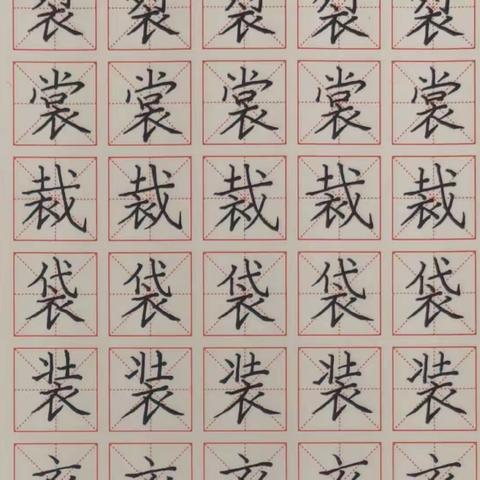 裂裂裂裂裂
裳裳裳裳裳
裁裁裁裁裁
袋袋袋袋袋
装装装装装